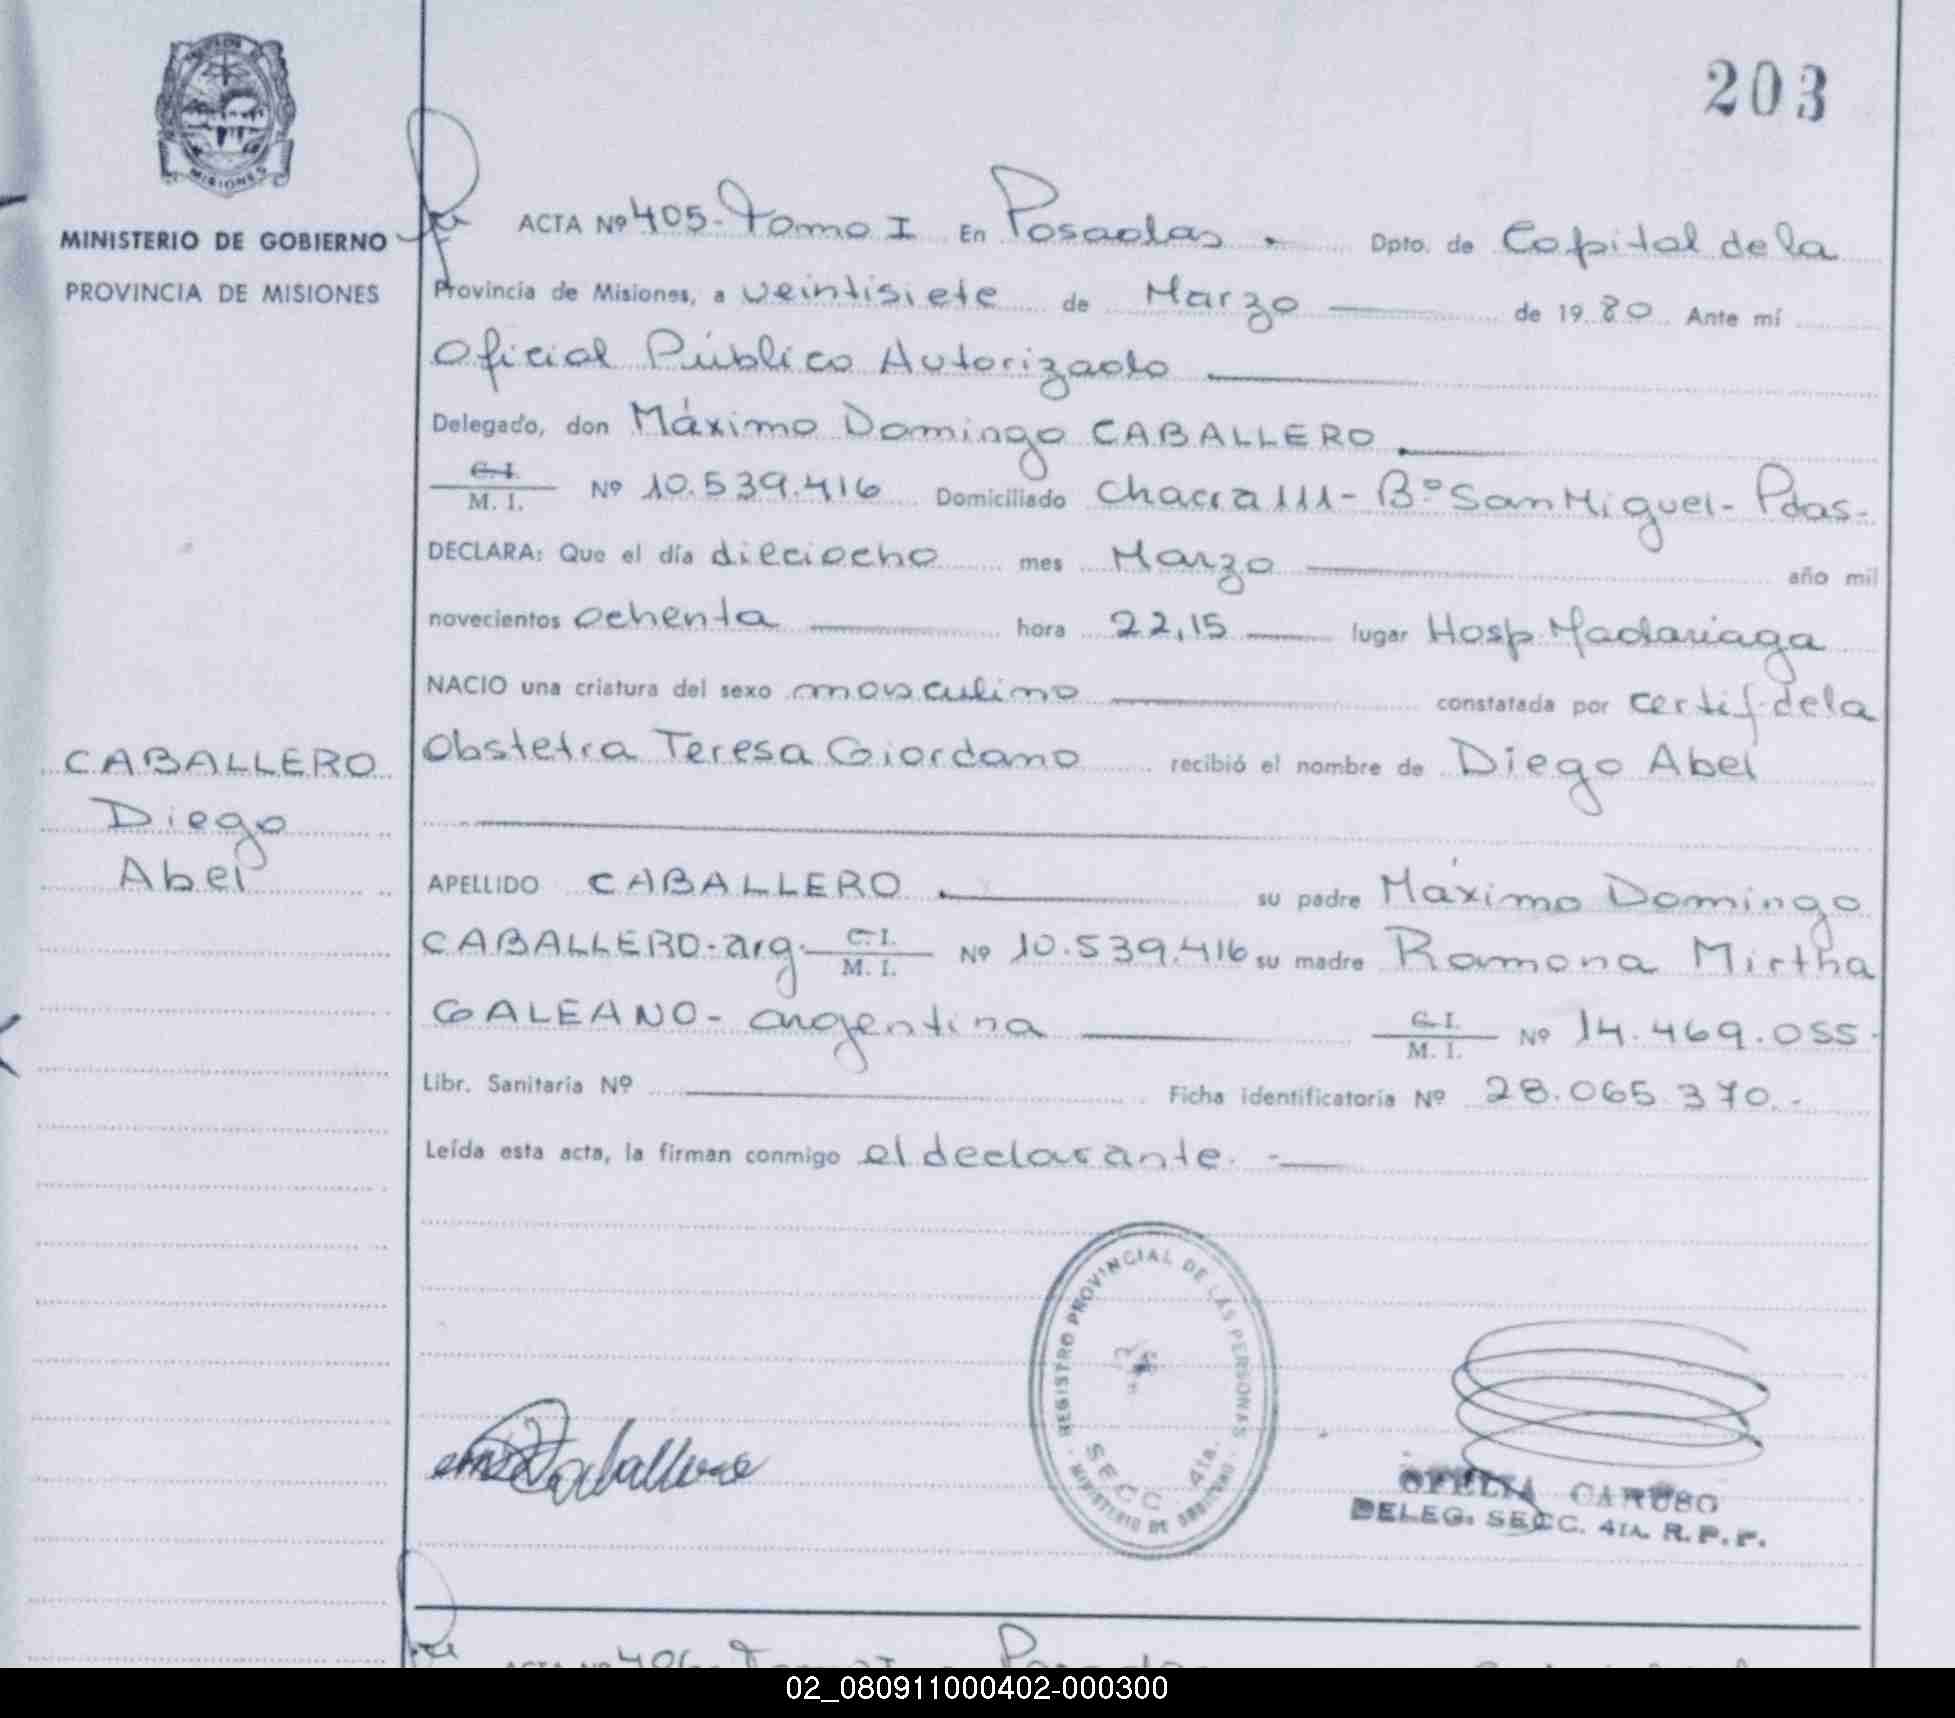 203
MISIONES
MINISTERIO DE GOBIERNO
PROVINCIA DE MISIONES
CABALLERO
Diego
Abel
ACTA Nº 405- Tomo I En Posadas . Dpto. de Capital de la
Provincia de Misiones, a veintisiete de Marzo de 1980 Ante mí
Oficial Público Autorizado
Delegado, don Máximo Domingo CABALLERO
C.I.
M. I. Nº 10.539.416 Domiciliado Chacra 111- Bº San Miguel- Pdas-
DECLARA: Que el día dieciocho mes Marzo año mil
novecientos ochenta hora 22,15 lugar Hosp. Madariaga
NACIO una criatura del sexo masculino constatada por certif. de la
Obstetra Teresa Giordano recibió el nombre de Diego Abel
APELLIDO CABALLERO su padre Máximo Domingo
CABALLERO-arg. C.I.
M. I. Nº 10.539.416 su madre Ramona Mirtha
GALEANO- argentina C.I.
M. I. Nº 14.469.055-
Libr. Sanitaria Nº Ficha identificatoria Nº 28.065.370.-
Leída esta acta, la firman conmigo el declarante. -
REGISTRO PROVINCIAL DE LAS PERSONAS
SECC 4ta.
MINISTERIO DE GOBIERNO
Caballero
OFELIA CARUSO
DELEG. SECC. 4TA. R.P.P.
02_080911000402-000300